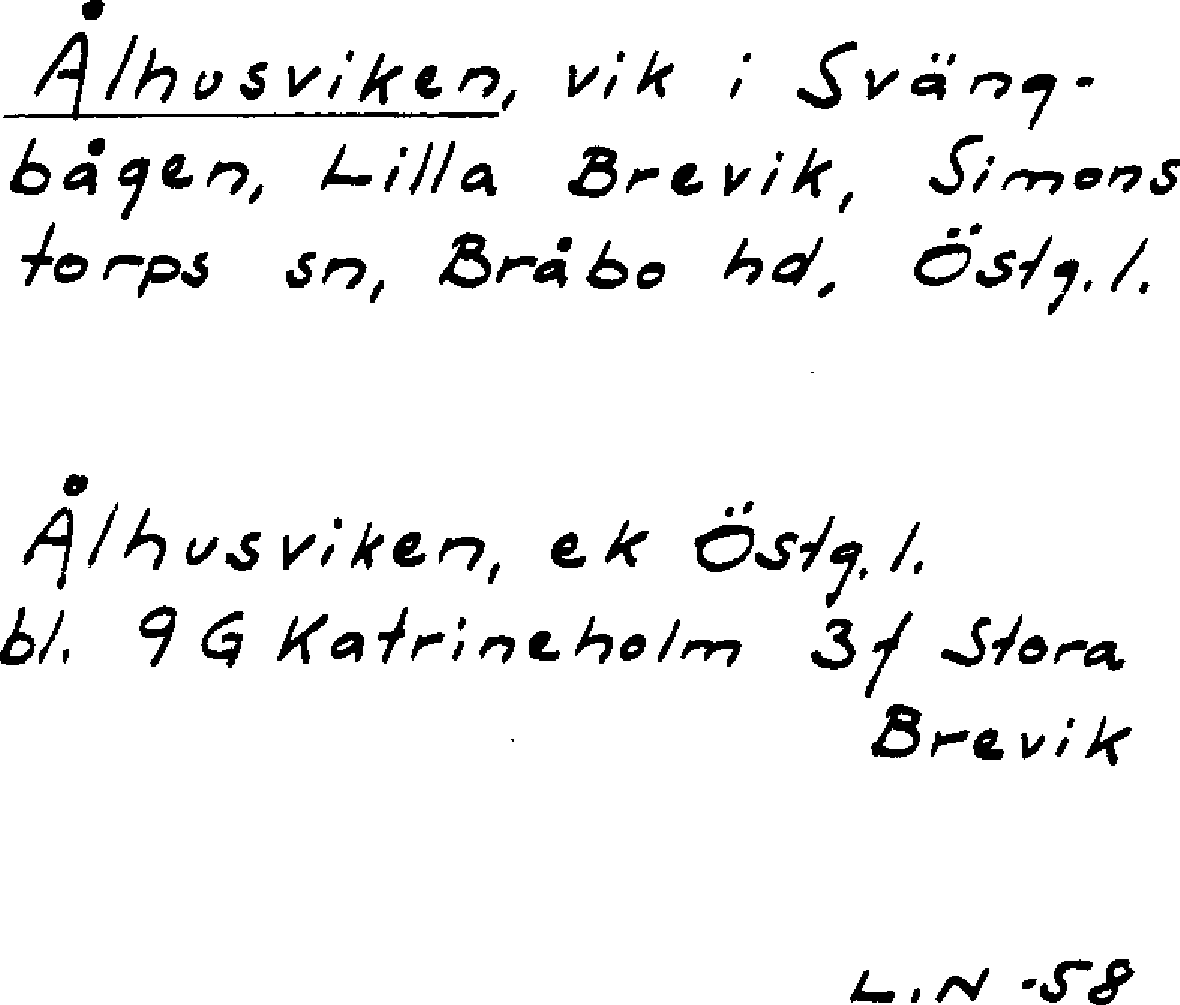 Ålhusviken, vik i Sväng-
bågen, Lilla Brevik, Simons
torps sn, Bråbo hd, Östg. l.
Ålhusviken, ek Östg. l.
bl. 9 G Katrineholm 3f Stora
Brevik
L. N -58